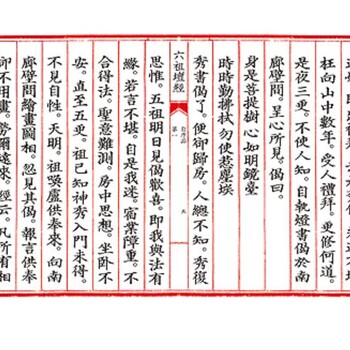 枉向山中數年。受人禮拜。更修何道。
是夜三更。不使人知。自執燈書偈於南
廊壁間。呈心所見。偈曰。
身是菩提樹 心如明鏡臺
時時勤拂拭 勿使惹塵埃
秀書偈了。便卻歸房。人總不知。秀復
六祖壇經 第一
思惟。五祖明日見偈歡喜。即我與法有
緣。若言不堪。自是我迷。宿業障重。不
合得法。聖意難測。房中思想。坐臥不
安。直至五更。祖已知神秀入門未得。
不見自性。天明。祖喚盧供奉來。向南
廊壁間繪畫圖相。忽見其偈。報言供奉
卻不用畫。勞爾遠來。經云。凡所有相